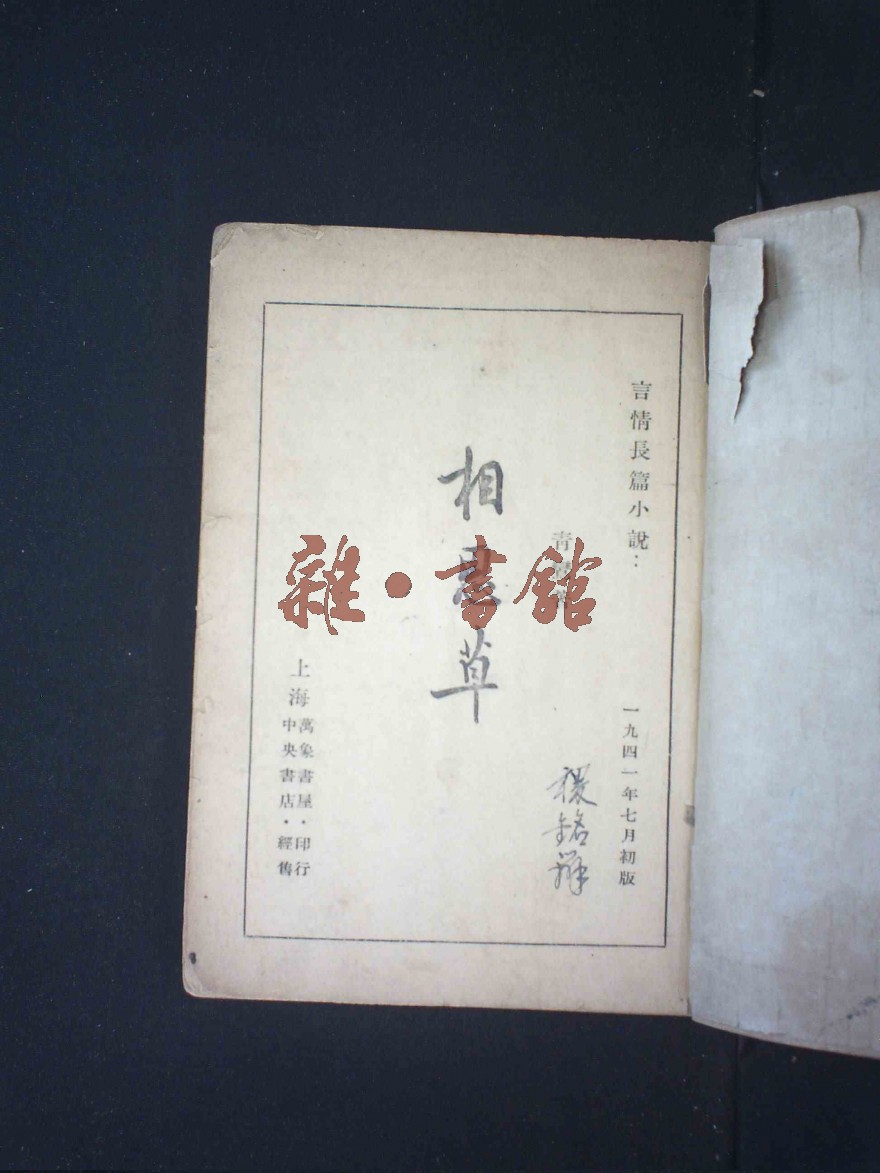 言情長篇小說：
一九四一年七月初版
相思草
上海
萬象書屋·印行
中央書店·經售
雜·書館